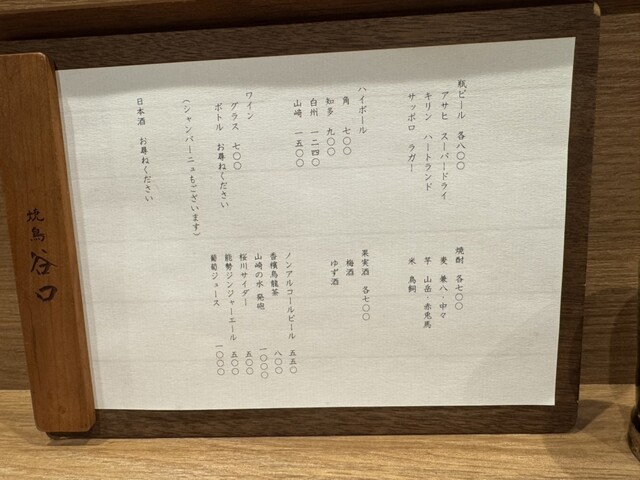 瓶ビール 各八〇〇
アサヒ スーパードライ
キリン ハートランド
サッポロ ラガー
ハイボール
角 七〇〇
知多 九〇〇
白州 一二四〇
山崎 一五〇〇
ワイン
グラス 七〇〇
ボトル お尋ねください
(シャンパーニュもございます)
日本酒 お尋ねください
焼酎 各七〇〇
麦 兼八・中々
芋 山岳・赤兎馬
米 鳥飼
果実酒 各七〇〇
梅酒
ゆず酒
ノンアルコールビール 五五〇
香檳烏龍茶 八〇〇
山崎の水 発砲 一〇〇〇
桜川サイダー 五〇〇
能勢ジンジャーエール 五〇〇
葡萄ジュース 一〇〇〇
焼鳥 谷口